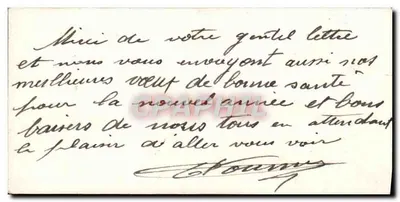 Merci de votre gentil lettre
et nous vous envoyont aussi nos
meilleures vœuf de bonne santé
pour la nouvel année et bons
baisers de nous tous en attendant
le plaisir d'aller vous voir